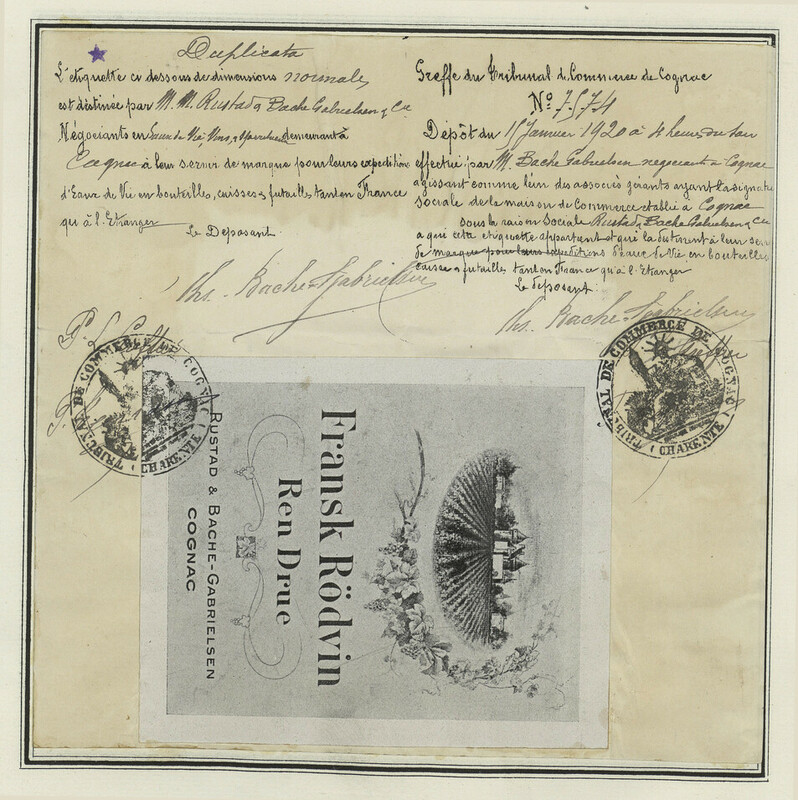 Duplicata
L'etiquette ci dessous de dimensions normales
est destinée par M. M. Rustad & Bache Gabrielsen & Cie
Négociants en Eaux de Vie, Vins, & Spiritueux demeurant à
Cognac à leur servir de marque pour leurs expeditions
d'Eaux de Vie en bouteilles, caisses & futailles tant en France
qu'à l'Etranger
Le Deposant.
Ths. Bache-Gabrielsen
Greffe du Tribunal de Commerce de Cognac
No 7574
Dépôt du 15 Janvier 1920 à 4 heures du soir
effectué par M. Bache Gabrielsen negociant à Cognac
agissant comme l'un des associés gérants ayant la signature
sociale de la maison de Commerce etablie à Cognac
sous la raison Sociale Rustad & Bache Gabrielsen & Cie
a qui cette etiquette appartient et qui la destinent à leur
de marque pour leurs expeditions d'eaux de Vie en bouteilles
caisses & futailles tant en France qu'à l'Etranger
Le deposant:
Ths. Bache-Gabrielsen
TRIBUNAL DE COMMERCE DE COGNAC
(CHARENTE)
TRIBUNAL DE COMMERCE DE COGNAC
(CHARENTE)
Fransk Rödvin
Ren Drue
RUSTAD & BACHE-GABRIELSEN
COGNAC